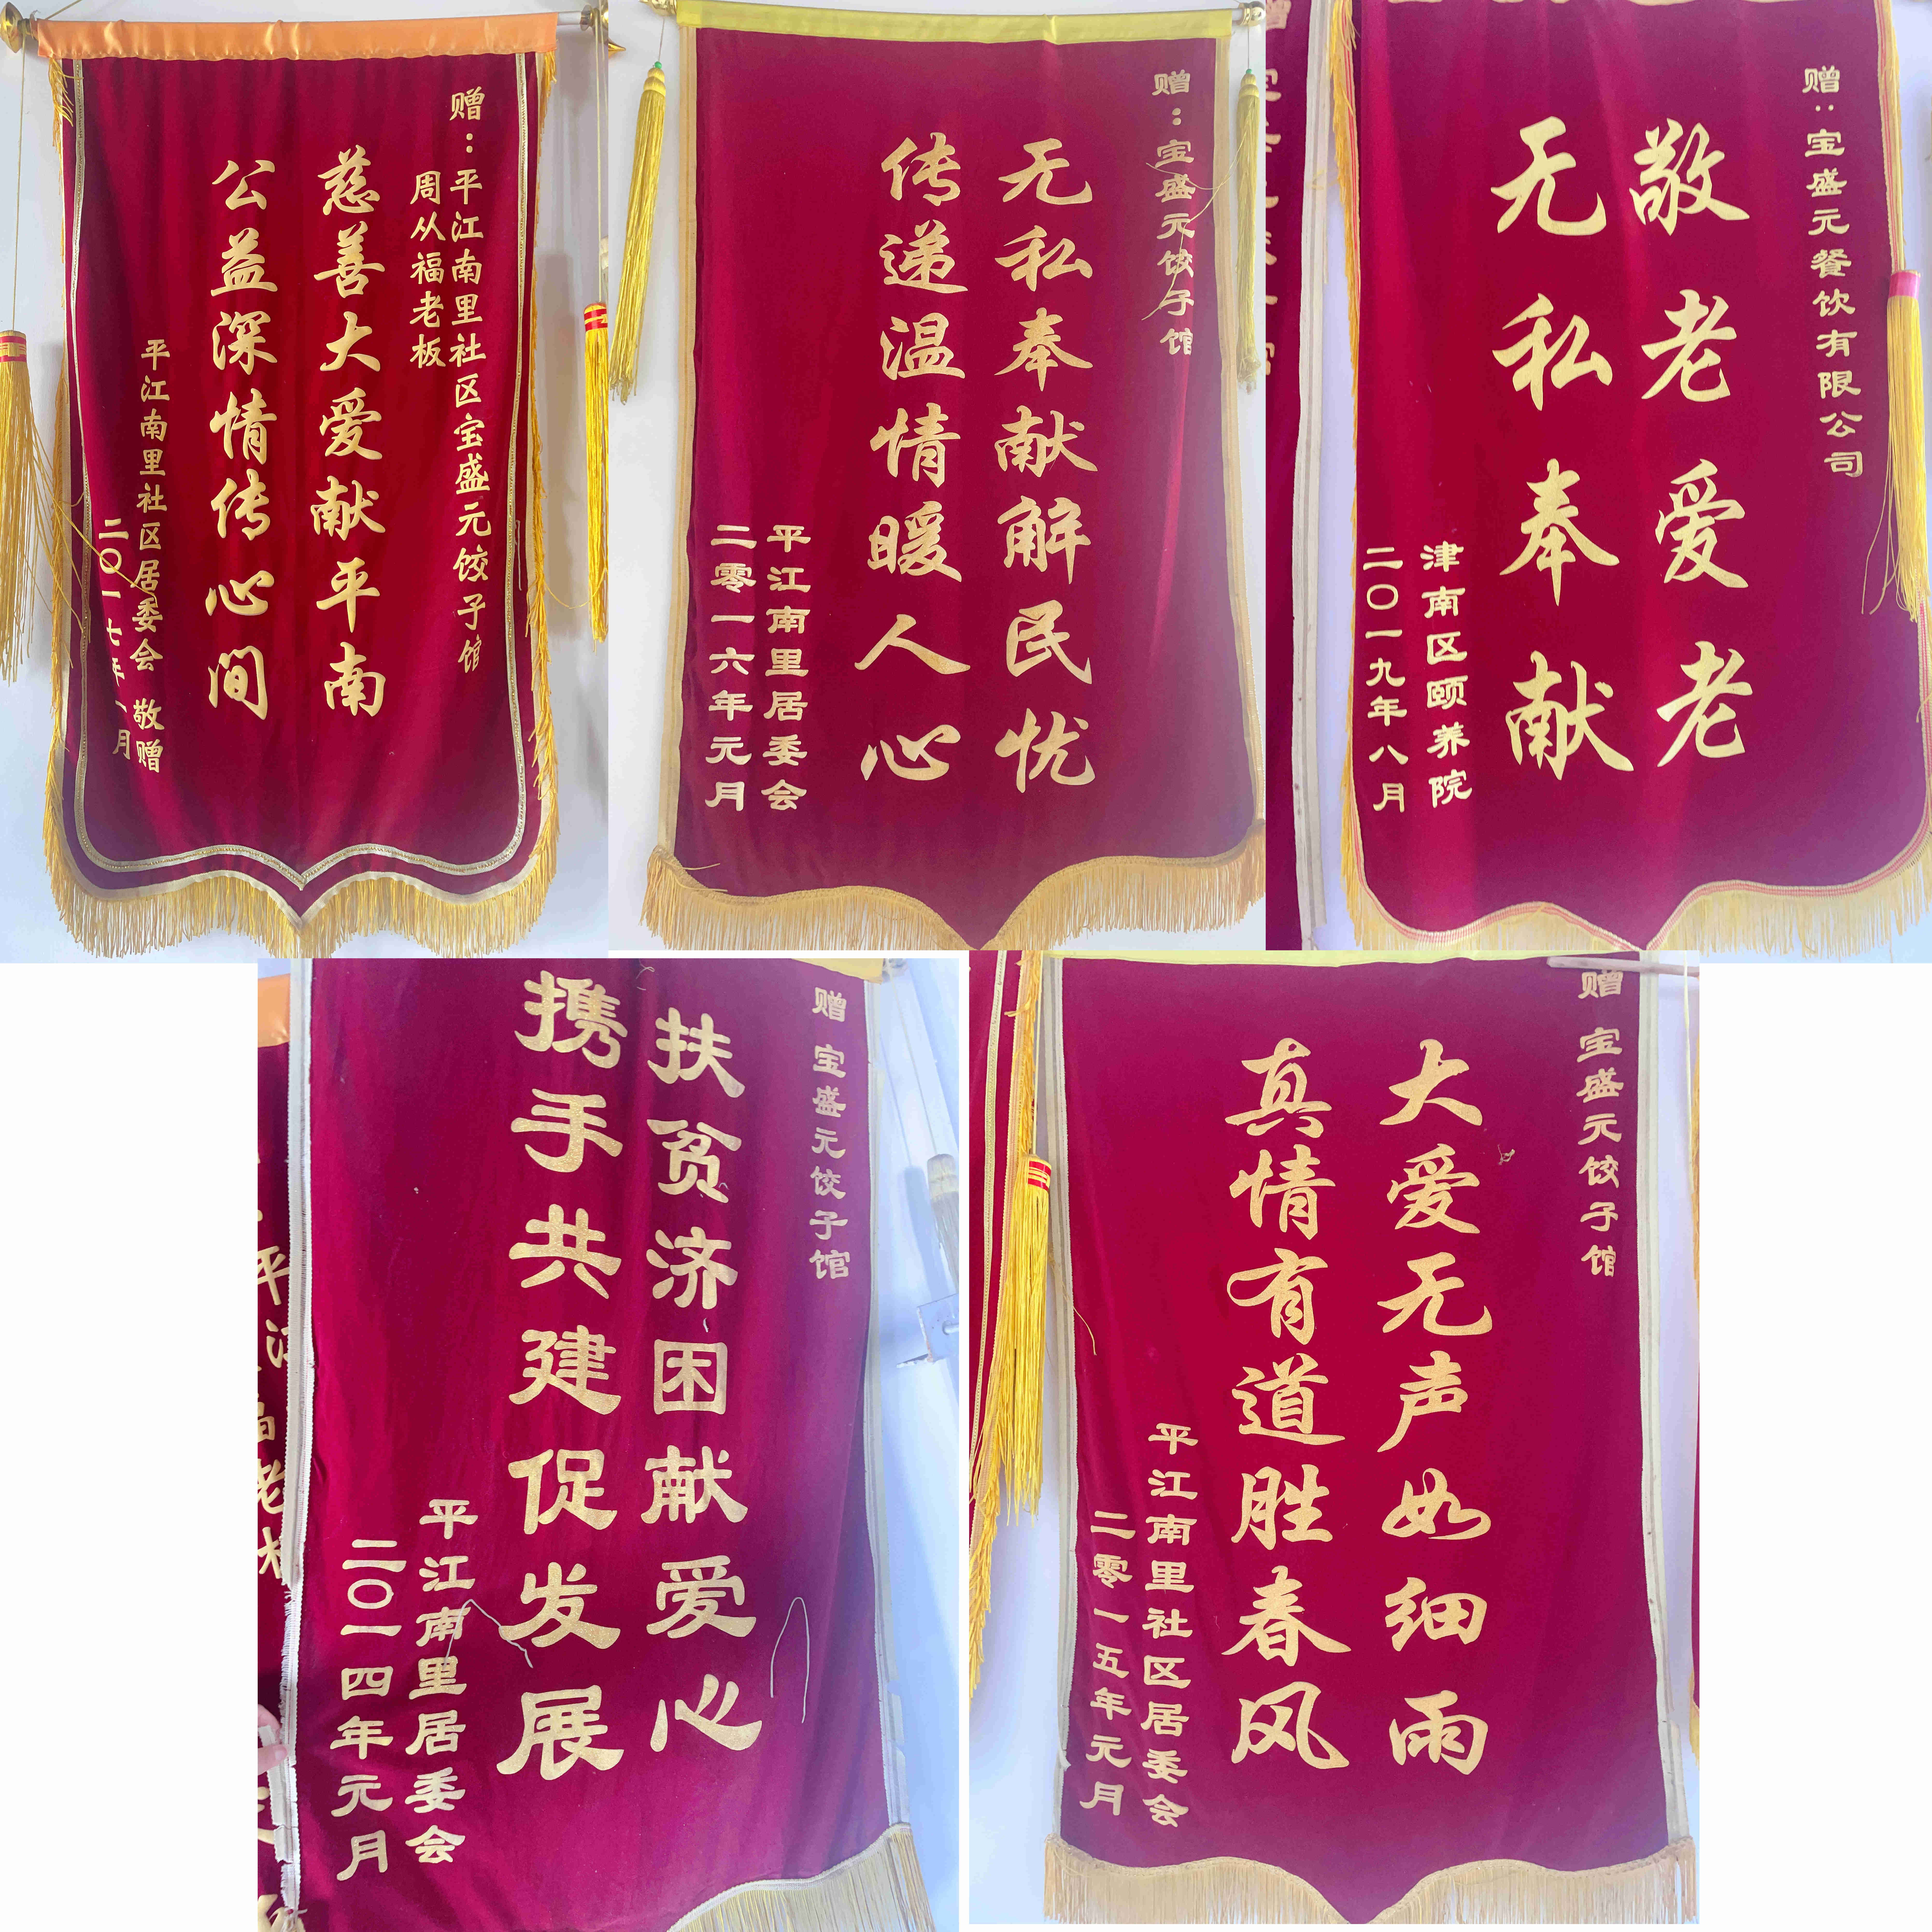 赠：平江南里社区宝盛元饺子馆
周从福老板
慈善大爱献平南
公益深情传心间
平江南里社区居委会 敬赠
二〇一七年一月
赠：宝盛元饺子馆
无私奉献解民忧
传递温情暖人心
平江南里居委会
二零一六年元月
赠：宝盛元餐饮有限公司
敬老爱老
无私奉献
津南区颐养院
二〇一九年八月
赠 宝盛元饺子馆
扶贫济困献爱心
携手共建促发展
平江南里居委会
二〇一四年元月
赠 宝盛元饺子馆
大爱无声如细雨
真情有道胜春风
平江南里社区居委会
二零一五年元月